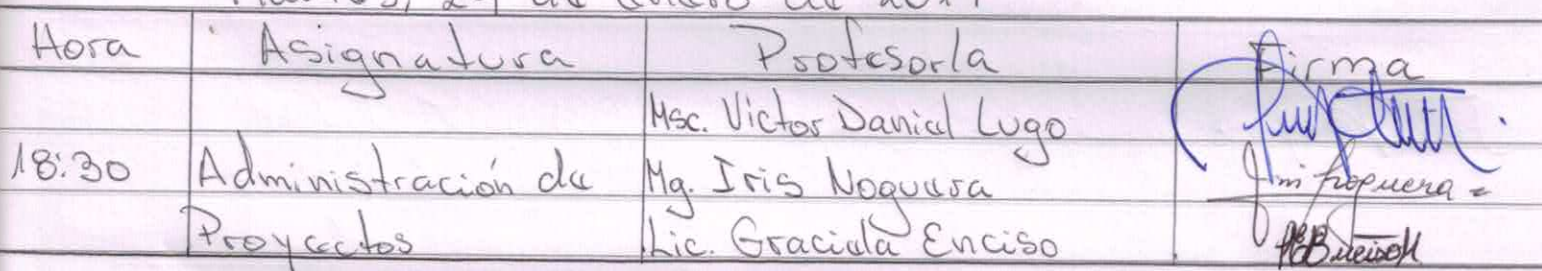 Hora Asignatura Profesor/a Firma
Msc. Victor Daniel Lugo
18:30 Administración de Mg. Iris Noguera
Proyectos Lic. Graciela Enciso